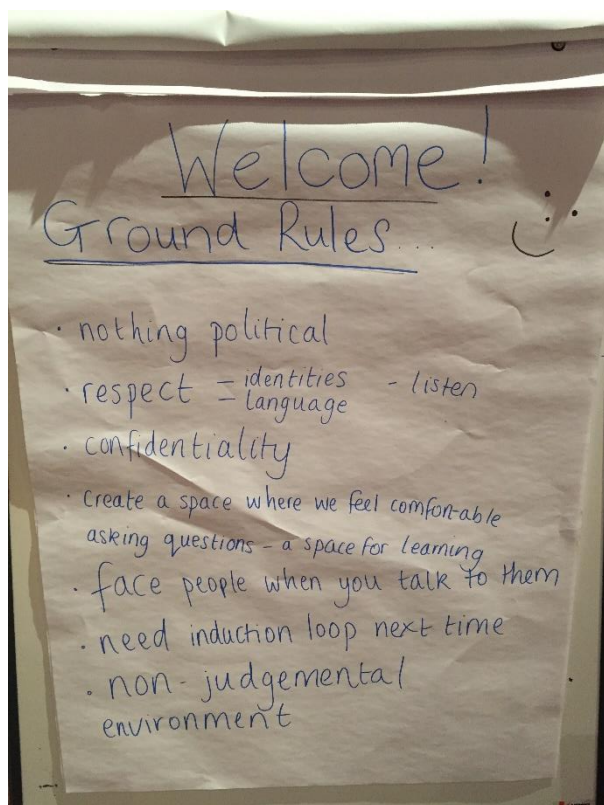 Welcome!
Ground Rules...
· nothing political
· respect = identities - listen
language
· confidentiality
· Create a space where we feel comfortable
asking questions - a space for learning
· face people when you talk to them
· need induction loop next time
· non-judgemental
environment